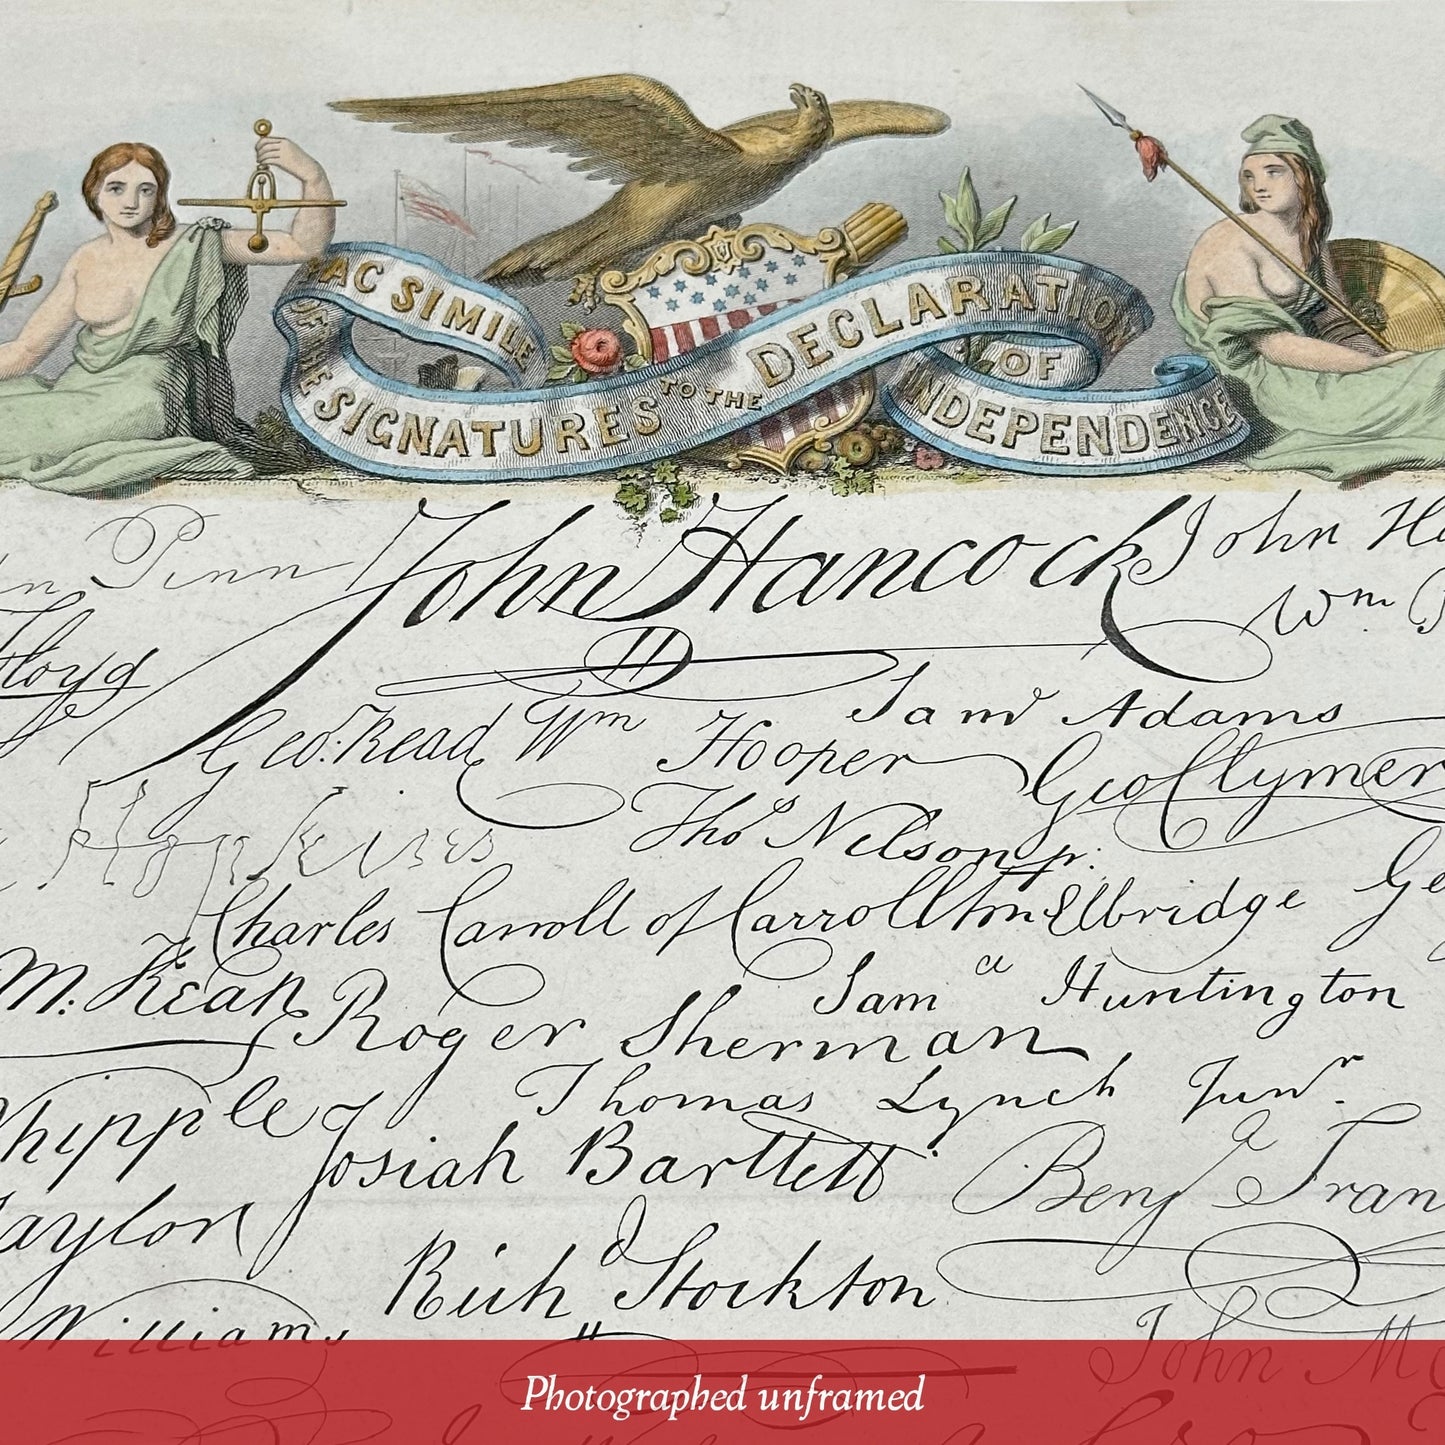 FAC SIMILE
OF THE
SIGNATURES
TO THE
DECLARATION
OF
INDEPENDENCE
Penn John Hancock John
Wm
Floyd
Sam Adams
Geo. Read Wm Hooper Geo Clymer
Hopkins Thos Nelson jr.
Charles Carroll of Carrollton Elbridge Ge
M: Kean Saml Huntington
Roger Sherman
Thomas Lynch Junr.
Whipple
Josiah Bartlett
Benja Fran
Taylor
Richd Stockton
Williams
John
Photographed unframed